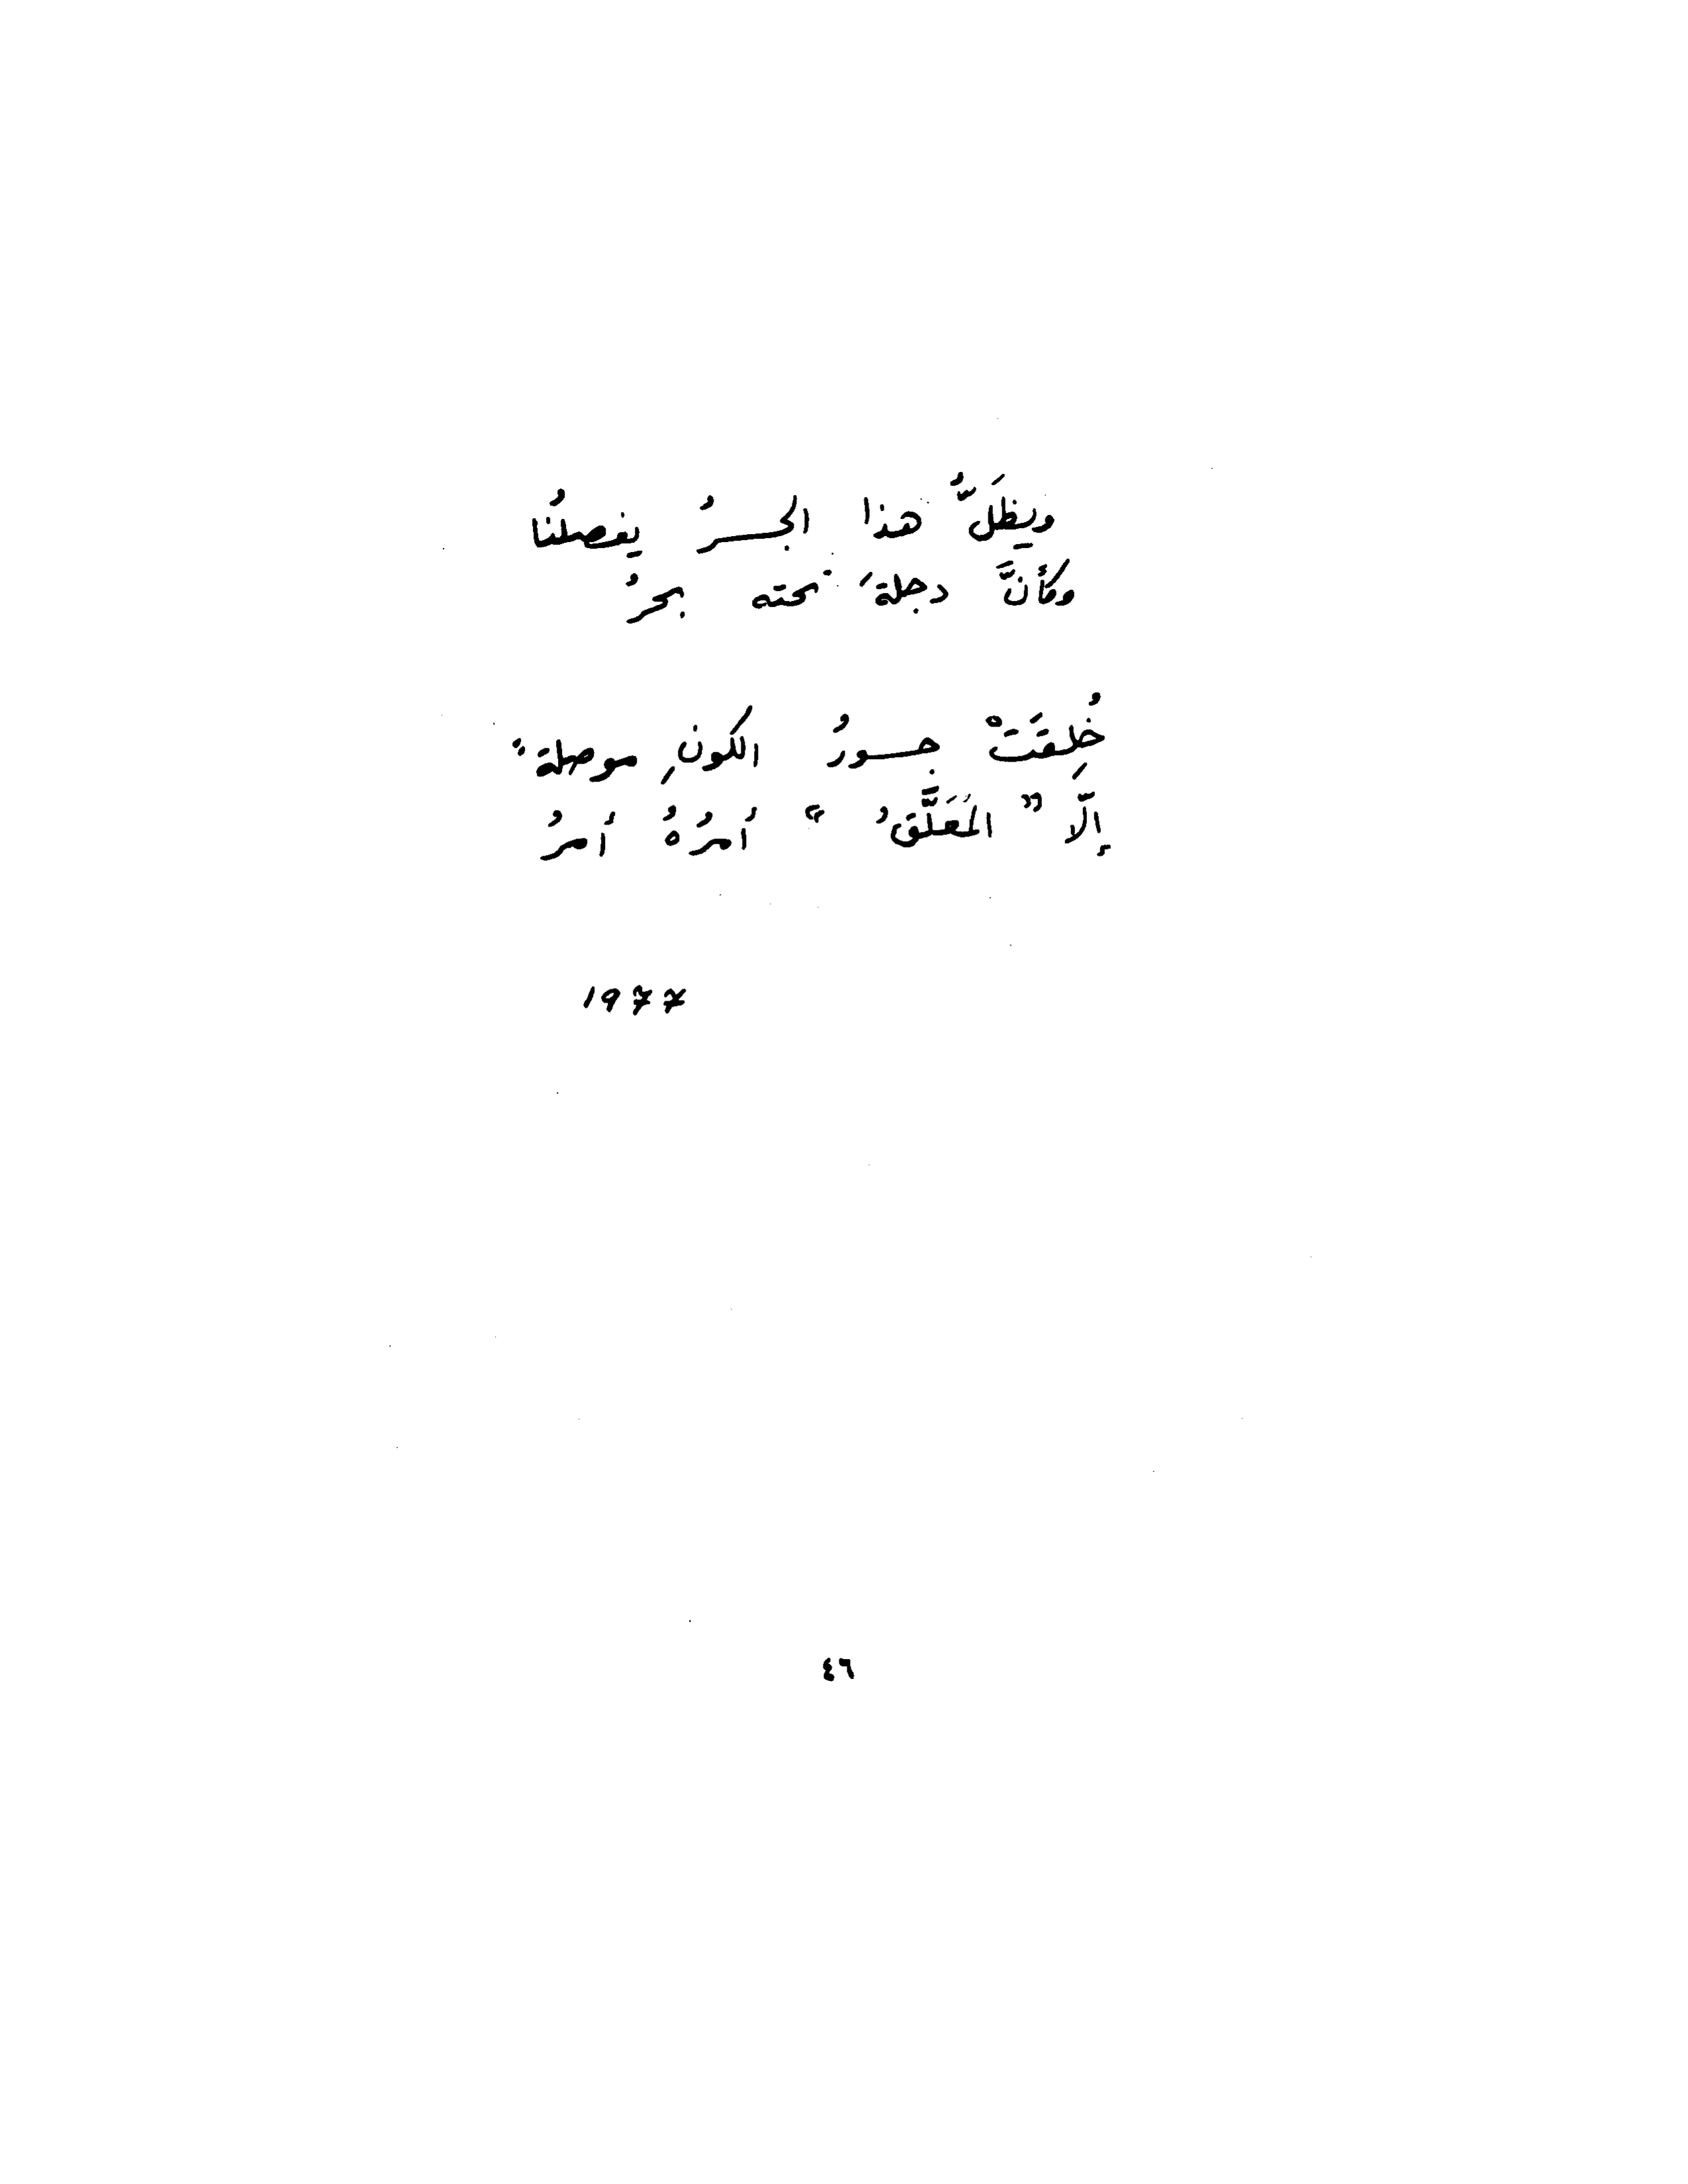 ويظَلُّ هذا الجسرُ يفصلُنا
وكأنَّ دجلةَ تحته بحرُ
خُلِقَتْ جسورُ الكونِ موصِلةً
إلّا " المُعَلَّقُ " أمرُهُ أمرُ
1977
٤٦